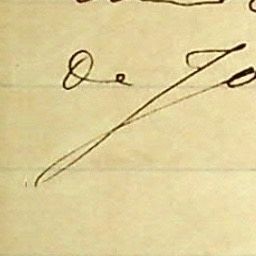 de Jo